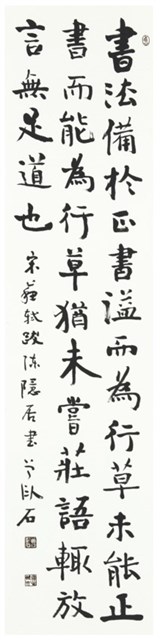 書法備於正書溢而為行草未能正
書而能為行草猶未嘗莊語輒放
言無足道也
宋蘇軾跋陳隱居書 臥石